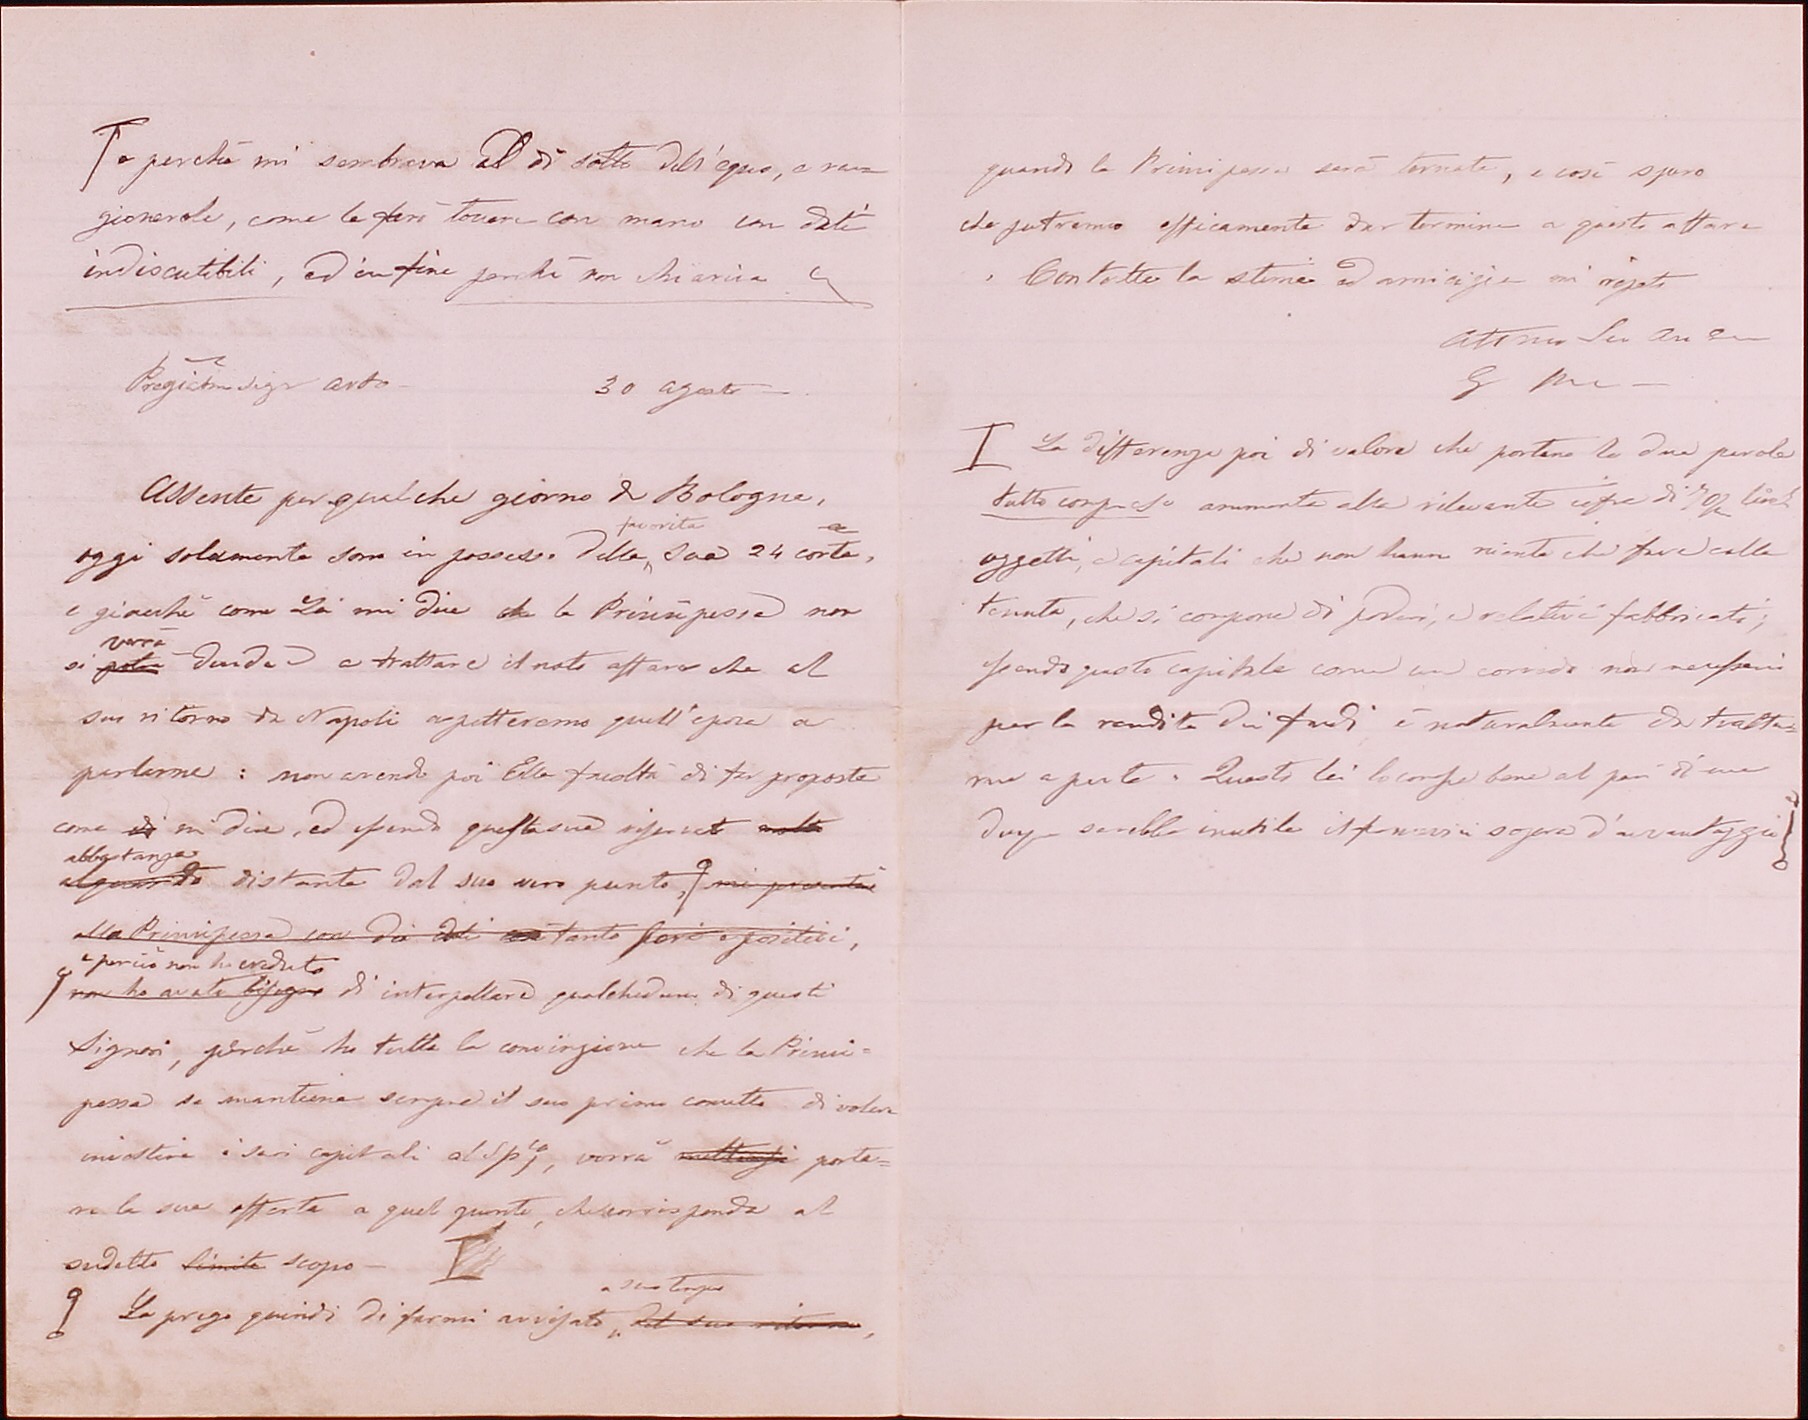 e perchè mi sembrava al di sotto dell'equo, e ra=
gionevole, come le farò toccare con mano con dati
indiscutibili, ed in fine perchè non chiariva
30 agosto
Assente per qualche giorno da Bologna,
favorita
oggi solamente sono in possesso della Sua 24 corte,
e giacchè come Lei mi dice che la Principessa non
verrà
si potrà a trattare il noto affare che al
suo ritorno da Napoli aspetteremo quell'epoca a
parlarne: non avendo poi Ella facoltà di far proposte
come di mi dice, ed essendo questa sua molto
abbastanza
alquanto distante dal suo vero punto, mi presentai
alla Principessa con dati tanto positivi,
e perciò non ho creduto
non ho avuto bisogno di interpellare qualcheduno di questi
Signori, perchè ho tutta la convinzione che la Princi=
pessa se mantiene sempre il suo primo concetto di voler
investire i suoi capitali al , vorrà porta=
re la sua offerta a quel punto, che corrisponda al
sudetto limite scopo
a suo tempo
La prego quindi di farmi avvisato, del suo ritorno,
quando la Principessa sarà tornata, e così spero
che potremo efficamente dar termine a questo affare
Con tutta la stima ed amicizia mi ripeto
La differenza poi di valore che portano le due parole
tutto compreso ammonta alla rilevante cifra di
oggetti, e capitali che non hanno niente che fare colla
tenuta, che si compone di poderi, e relativi fabbricati;
essendo questo capitale come un corredo non necessario
per la rendita dei fondi è naturalmente da tratta=
re a parte. Questo Lei lo conosce bene al pari di me
sarebbe inutile il sopra d'avvantaggio